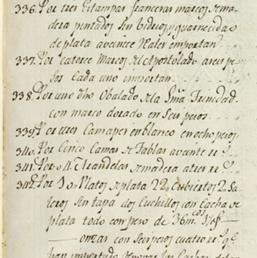 336. Por tres Estampas francesas marcos de ma
dera pintados sin bidrios y guarnecidas
de plata a veinte rr.^s importan
337. Por catorce Marcos del Apostolado a seis pe
sos Cada uno importan
338. Por uno dho Obalado de la SSma Trinidad
con marco dorado en Seis pesos
339. Por tres Camapes en blanco en ocho pesos
340. Por Cinco Camas de Tablas a veinte rr.
341. Por 4 Tirandelas de madera a tres rr.
342. Por 30 Platos de plata 22 cubiertos 2 Sa
leros sin tapa dos Cuchillos con Cacha de
plata todo con peso de 36 m^cos
onzas con Seis pesos quatro rr.
han importado